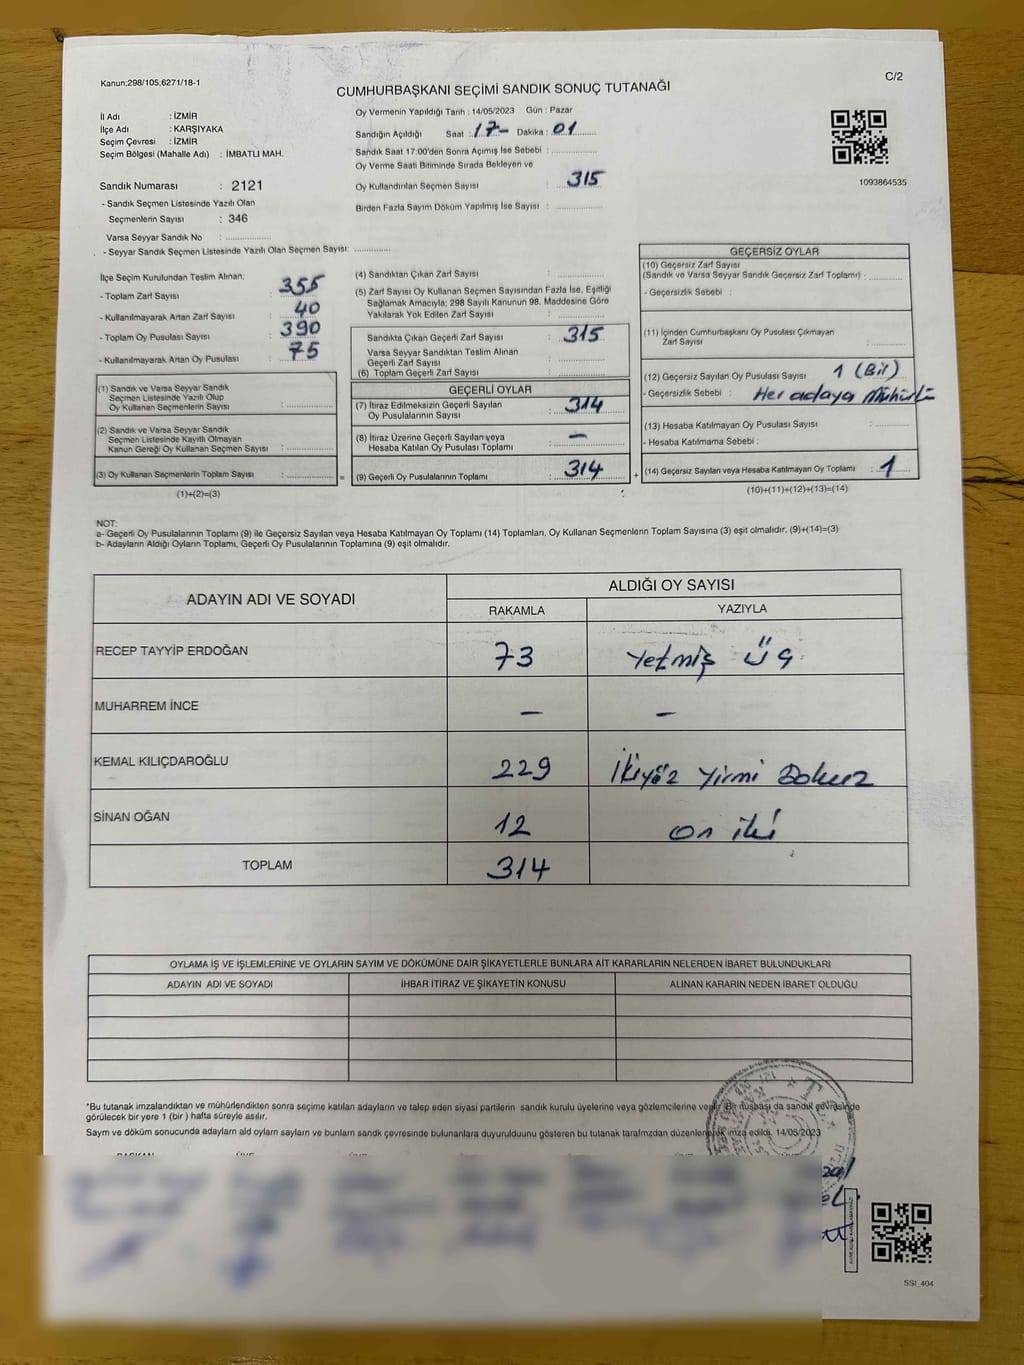 Kanun;298/105,6271/18-1
C/2
CUMHURBAŞKANI SEÇİMİ SANDIK SONUÇ TUTANAĞI
İl Adı : İZMİR
İlçe Adı : KARŞIYAKA
Seçim Çevresi : İZMİR
Seçim Bölgesi (Mahalle Adı) : İMBATLI MAH.
Oy Vermenin Yapıldığı Tarih : 14/05/2023 Gün : Pazar
Sandığın Açıldığı Saat : 17- Dakika : 01
Sandık Saat 17:00'den Sonra Açımış İse Sebebi :
Oy Verme Saati Bitiminde Sırada Bekleyen ve
Oy Kullandırılan Seçmen Sayısı : 315
Birden Fazla Sayım Döküm Yapılmış İse Sayısı :
1093864535
Sandık Numarası : 2121
- Sandık Seçmen Listesinde Yazılı Olan
Seçmenlerin Sayısı : 346
Varsa Seyyar Sandık No :
- Seyyar Sandık Seçmen Listesinde Yazılı Olan Seçmen Sayısı:
İlçe Seçim Kurulundan Teslim Alınan;
- Toplam Zarf Sayısı : 355
- Kullanılmayarak Artan Zarf Sayısı : 40
- Toplam Oy Pusulası Sayısı : 390
- Kullanılmayarak Artan Oy Pusulası : 75
(1) Sandık ve Varsa Seyyar Sandık
Seçmen Listesinde Yazılı Olup
Oy Kullanan Seçmenlerin Sayısı :
(2) Sandık ve Varsa Seyyar Sandık
Seçmen Listesinde Kayıtlı Olmayan
Kanun Gereği Oy Kullanan Seçmen Sayısı :
(3) Oy Kullanan Seçmenlerin Toplam Sayısı : =
(1)+(2)=(3)
(4) Sandıktan Çıkan Zarf Sayısı :
(5) Zarf Sayısı Oy Kullanan Seçmen Sayısından Fazla İse, Eşitliği
Sağlamak Amacıyla; 298 Sayılı Kanunun 98. Maddesine Göre
Yakılarak Yok Edilen Zarf Sayısı :
Sandıkta Çıkan Geçerli Zarf Sayısı : 315
Varsa Seyyar Sandıktan Teslim Alınan
Geçerli Zarf Sayısı :
(6) Toplam Geçerli Zarf Sayısı :
GEÇERLİ OYLAR
(7) İtiraz Edilmeksizin Geçerli Sayılan
Oy Pusulalarının Sayısı : 314
(8) İtiraz Üzerine Geçerli Sayılan veya
Hesaba Katılan Oy Pusulası Toplamı : —
(9) Geçerli Oy Pusulalarının Toplamı : 314 +
GEÇERSİZ OYLAR
(10) Geçersiz Zarf Sayısı
(Sandık ve Varsa Seyyar Sandık Geçersiz Zarf Toplamı) :
- Geçersizlik Sebebi :
(11) İçinden Cumhurbaşkanı Oy Pusulası Çıkmayan
Zarf Sayısı :
(12) Geçersiz Sayılan Oy Pusulası Sayısı : 1 (Bir)
- Geçersizlik Sebebi : Her adaya Mühürlü
(13) Hesaba Katılmayan Oy Pusulası Sayısı :
- Hesaba Katılmama Sebebi :
(14) Geçersiz Sayılan veya Hesaba Katılmayan Oy Toplamı : 1
(10)+(11)+(12)+(13)=(14)
NOT:
a- Geçerli Oy Pusulalarının Toplamı (9) ile Geçersiz Sayılan veya Hesaba Katılmayan Oy Toplamı (14) Toplamları, Oy Kullanan Seçmenlerin Toplam Sayısına (3) eşit olmalıdır. (9)+(14)=(3)
b- Adayların Aldığı Oyların Toplamı, Geçerli Oy Pusulalarının Toplamına (9) eşit olmalıdır.
ADAYIN ADI VE SOYADI
ALDIĞI OY SAYISI
RAKAMLA YAZIYLA
RECEP TAYYİP ERDOĞAN 73 Yetmiş Üç
MUHARREM İNCE — —
KEMAL KILIÇDAROĞLU 229 İkiyüz Yirmi Dokuz
SİNAN OĞAN 12 on iki
TOPLAM 314
OYLAMA İŞ VE İŞLEMLERİNE VE OYLARIN SAYIM VE DÖKÜMÜNE DAİR ŞİKAYETLERLE BUNLARA AİT KARARLARIN NELERDEN İBARET BULUNDUKLARI
ADAYIN ADI VE SOYADI İHBAR İTİRAZ VE ŞİKAYETİN KONUSU ALINAN KARARIN NEDEN İBARET OLDUĞU
*Bu tutanak imzalandıktan ve mühürlendikten sonra seçime katılan adayların ve talep eden siyasi partilerin sandık kurulu üyelerine veya gözlemcilerine verilir. Bir nüshası da sandık çevresinde
görülecek bir yere 1 (bir ) hafta süreyle asılır.
Sayım ve döküm sonucunda adayların ald oyların sayıları ve bunların sandık çevresinde bulunanlara duyurulduunu gösteren bu tutanak tarafmzdan düzenlenerek imza edildi. 14/05/2023
SSI_404